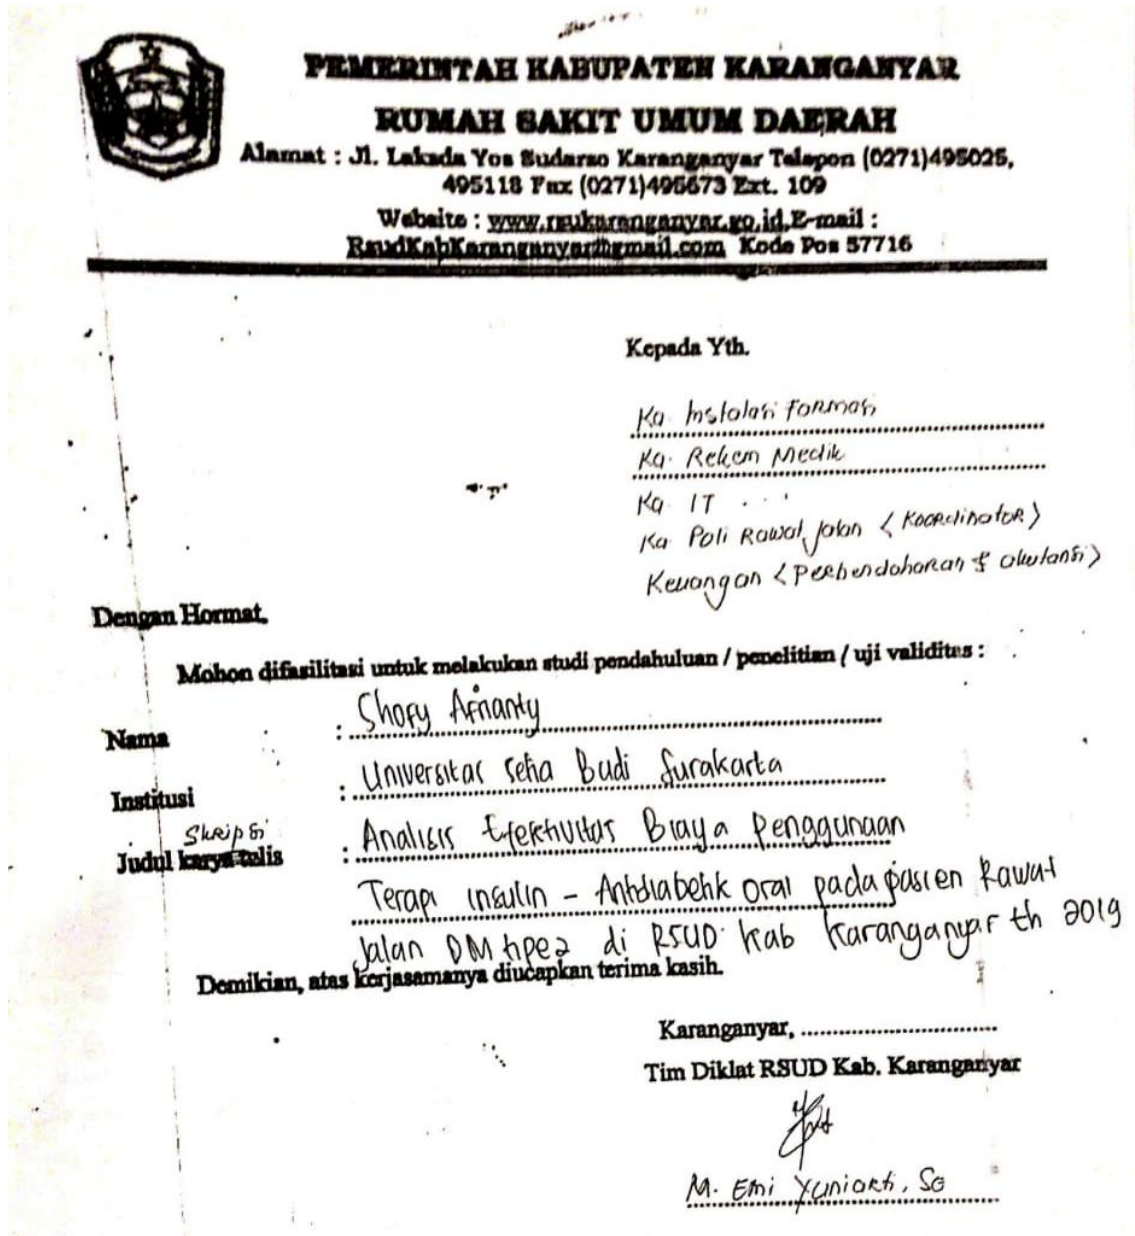 PEMERINTAH KABUPATEN KARANGANYAR
RUMAH SAKIT UMUM DAERAH
Alamat : Jl. Laksda Yos Sudarso Karanganyar Telepon (0271)495025,
495118 Fax (0271)495673 Ext. 109
Website : www.rsukaranganyar.go.id, E-mail :
RsudKabKaranganyar@gmail.com Kode Pos 57716
Kepada Yth.
Ka. Instalasi Farmasi
Ka. Rekam Medik
Ka IT
Ka Poli Rawat jalan < Koordinator >
Keuangan < Perbendaharan & akutansi >
Dengan Hormat,
Mohon difasilitasi untuk melakukan studi pendahuluan / penelitian / uji validitas :
Nama : Shofy Afrianty
Institusi : Universitas Setia Budi Surakarta
Skripsi
Judul karya tulis : Analisis Efektivitas Biaya Penggunaan
Terapi insulin - Antidiabetik oral pada pasien Rawat
Jalan DM tipe 2 di RSUD Kab Karanganyar th 2019
Demikian, atas kerjasamanya diucapkan terima kasih.
Karanganyar, ..............................
Tim Diklat RSUD Kab. Karanganyar
M. Emi Yuniarti, SE